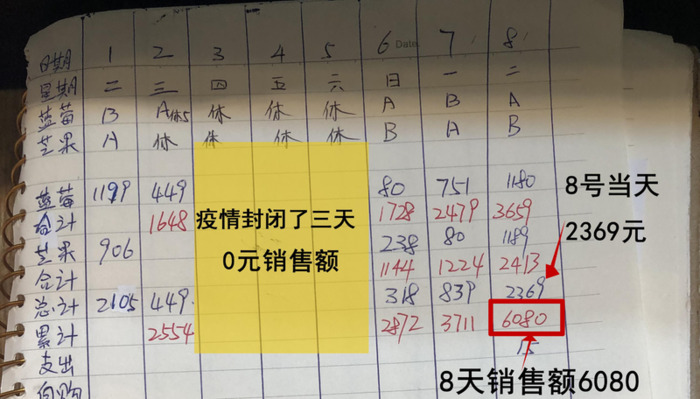 日期 1 2 3 4 5 6 Date 7 8
星期 二 三 四 五 六 日 一 二
蓝莓 B A休5 休 休 休 A B A
芒果 A 休 休 休 休 B A B
蓝莓 1199 449 80 751 1180
合计 1648 1728 2479 3659
芒果 906 238 80 1189
合计 1144 1224 2413
总计 2105 449 318 839 2369
累计 2554 2872 3711 6080
支出 15
疫情封闭了三天
0元销售额
8号当天
2369元
8天销售额6080